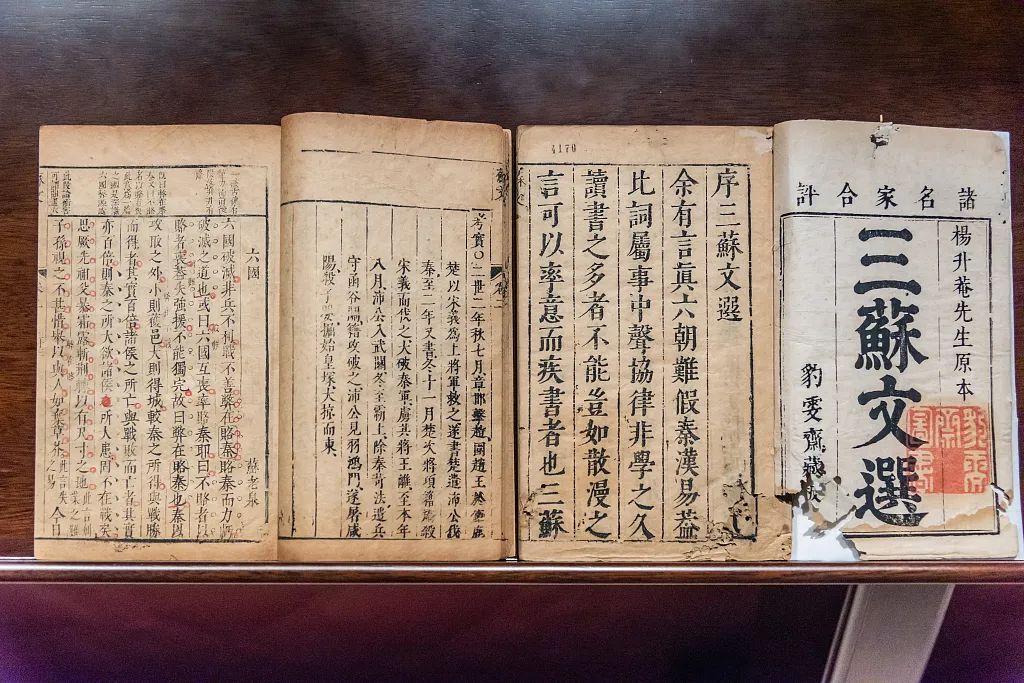 諸名家合評
楊升菴先生原本
三蘇文選
豹雯齋藏
序三蘇文選
余有言眞六朝難假秦漢易蓋
比詞屬事中聲協律非學之久
讀書之多者不能豈如散漫之
言可以率意而疾書者也三蘇
考實〇二世二年秋七月章邯擊趙國趙王
楚以宋義為上將軍救之遂書楚遣沛公伐
秦至二年又書冬十一月楚大將項籍殺
宋義而代之大破秦軍虜其將王離至本年
八月沛公入武關冬至霸上除秦苛法遣兵
守函谷關籍攻破之沛公見羽鴻門遂屠咸
陽殺子嬰掘始皇塚大掠而東
六國 蘇老泉
六國破滅非兵不利戰不善弊在賂秦賂秦而力虧
破滅之道也或曰六國互喪率賂秦耶曰不賂者以
賂者喪葢失強援不能獨完故曰弊在賂秦也秦以
攻取之外小則獲邑大則得城較秦之所得與戰勝
而得者其實百倍諸侯之所亡與戰敗而亡者其實
亦百倍則秦之所大欲諸侯之所大患固不在戰矣
思厥先祖父暴霜露斬荆棘以有尺寸之地
子孫視之不甚惜舉以與人如棄草芥今日